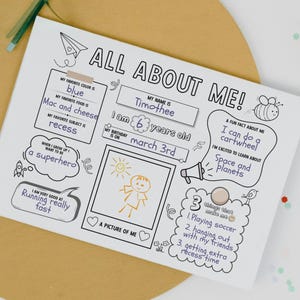 ALL ABOUT ME!
MY FAVORITE COLOR IS
blue
MY FAVORITE FOOD IS
Mac and cheese
MY FAVORITE SUBJECT IS
recess
MY NAME IS
Timothee
I am 6 years old
MY BIRTHDAY IS ON
march 3rd
A FUN FACT ABOUT ME
I can do a
cartwheel
I'M EXCITED TO LEARN ABOUT
Space and
planets
WHEN I GROW UP I
WANT TO BE
a superhero
I AM VERY GOOD AT
Running really
fast
A PICTURE OF ME
3 things that
make me
1. Playing soccer
2. hanging out
with my friends
3. getting extra
recess time